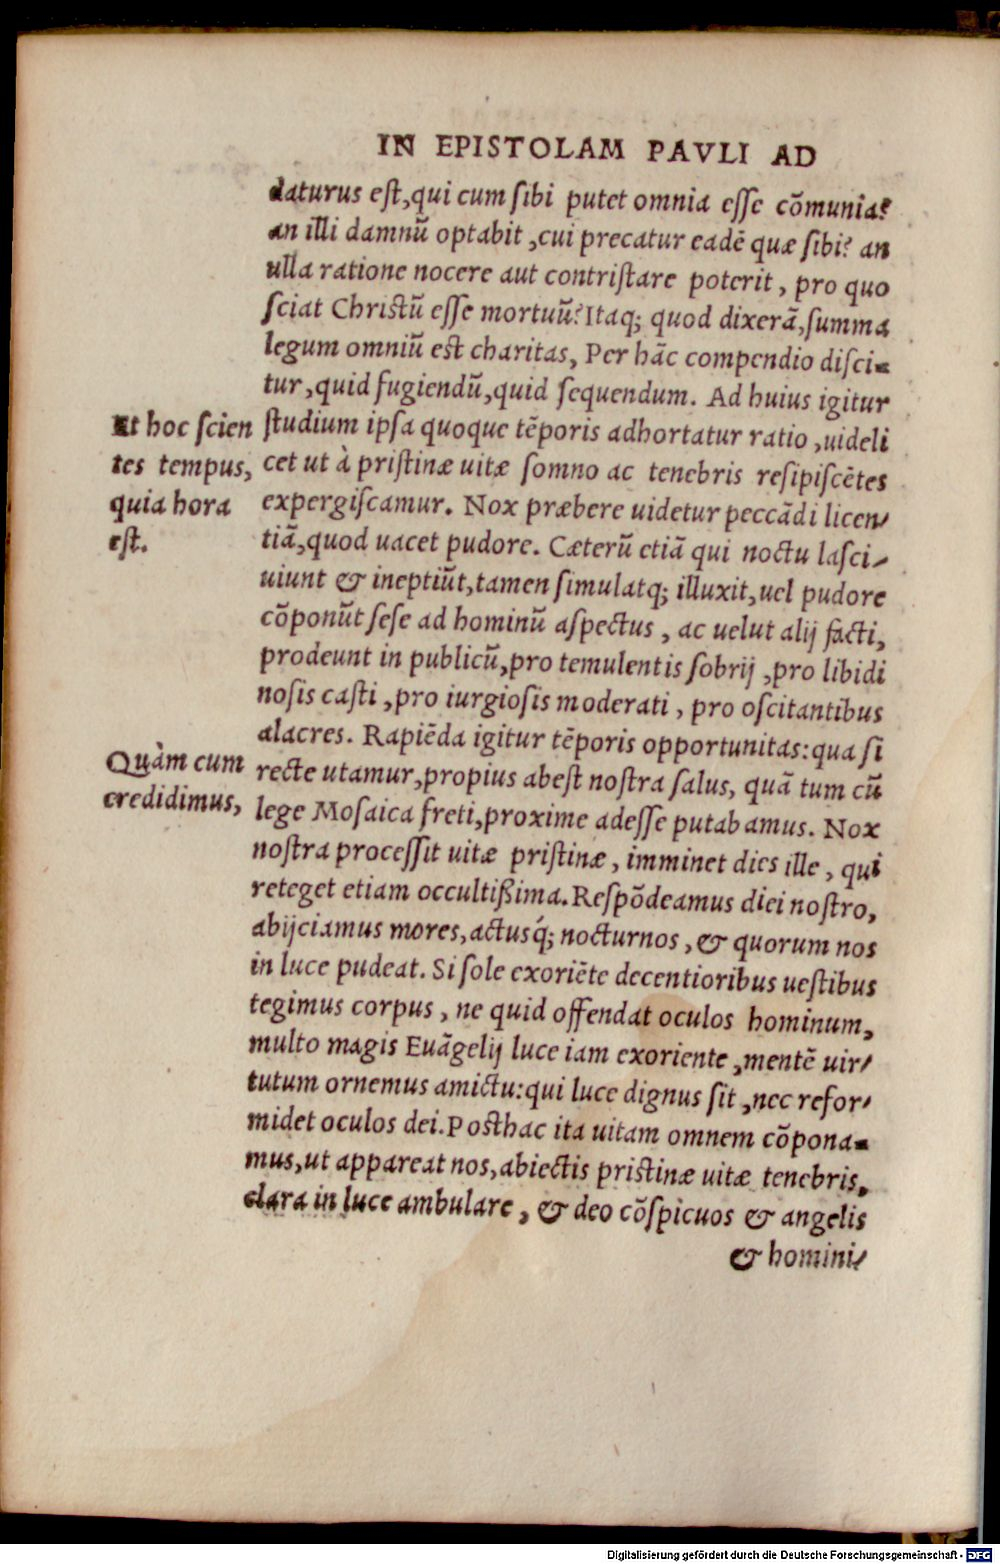 IN EPISTOLAM PAVLI AD
daturus eſt,qui cum ſibi putet omnia eſſe cõmunia?
an illi damnũ optabit ,cui precatur eadẽ quæ ſibi? an
ulla ratione nocere aut contriſtare poterit , pro quo
ſciat Chriſtũ eſſe mortuũ?Itaq; quod dixerã,ſumma
legum omniũ est charitas, Per hãc compendio diſci-
tur,quid fugiendũ,quid ſequendum. Ad huius igitur
Et hoc ſcien
tes tempus,
quia hora
eſt.
ſtudium ipſa quoque tẽporis adhortatur ratio ,uideli
cet ut à priſtinæ uitæ ſomno ac tenebris reſipiſcẽtes
expergiſcamur. Nox præbere uidetur peccãdi licen-
tiã,quod uacet pudore. Cæterũ etiã qui noctu laſci-
uiunt & ineptiũt,tamen ſimulatq; illuxit,uel pudore
cõponũt ſeſe ad hominũ aſpectus , ac uelut alij facti,
prodeunt in publicũ,pro temulentis ſobrij ,pro libidi
noſis caſti ,pro iurgioſis moderati , pro oſcitantibus
alacres. Rapiẽda igitur tẽporis opportunitas:qua ſi
Quàm cum
credidimus,
recte utamur,propius abeſt noſtra ſalus, quã tum cũ
lege Moſaica freti,proxime adeſſe putabamus. Nox
noſtra proceſſit uitæ priſtinæ , imminet dies ille , qui
reteget etiam occultißima. Reſpõdeamus diei noſtro,
abijciamus mores,actusq́; nocturnos , & quorum nos
in luce pudeat. Si ſole exoriẽte decentioribus ueſtibus
tegimus corpus , ne quid offendat oculos hominum,
multo magis Euãgelij luce iam exoriente ,mentẽ uir-
tutum ornemus amictu:qui luce dignus ſit ,nec refor-
midet oculos dei.Posthac ita uitam omnem cõpona-
mus,ut appareat nos,abiectis priſtinæ uitæ tenebris,
clara in luce ambulare , & deo cõſpicuos & angelis
& homini-
Digitalisierung gefördert durch die Deutsche Forschungsgemeinschaft - DFG